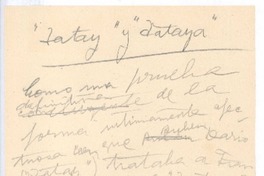 "Tatay" y "Tataya"
Como una prueba
definitiva de la
forma intimamente afec-
tuosa con que Rubén Darío
trataba a Fran